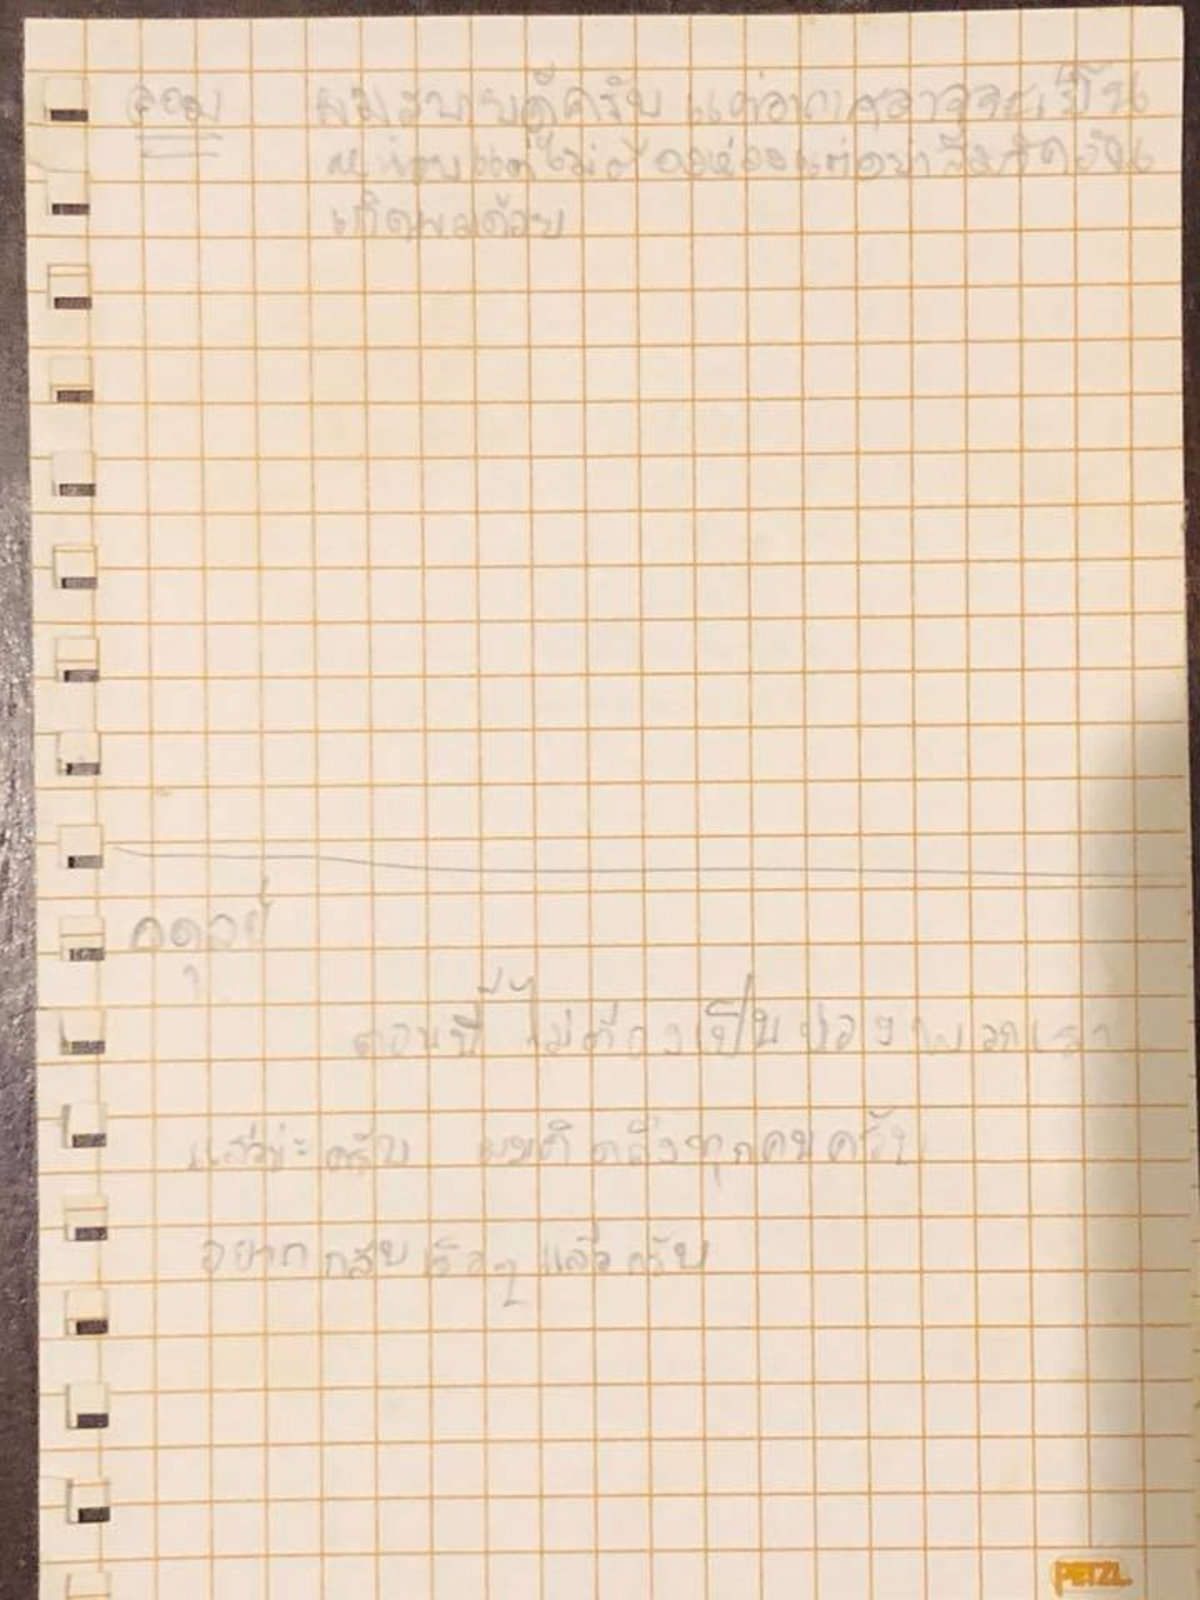 ออม ผมสบายดีครับ แต่อากาศอาจจะเย็น
หน่อยแต่ไม่ต้องห่วงแต่อย่าลืมจัดวัน
เกิดผมด้วย
อดุลย์
ตอนนี้ไม่ต้องเป็นห่วงพวกเรา
แล้วน่ะครับ ผมคิดถึงทุกคนครับ
อยากกลับเร็วๆแล้วครับ
PETZL